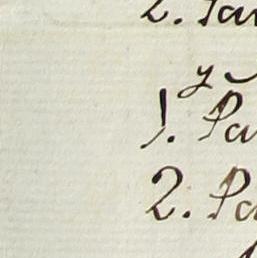 2. Pa
y
1. Pa
2. Pa